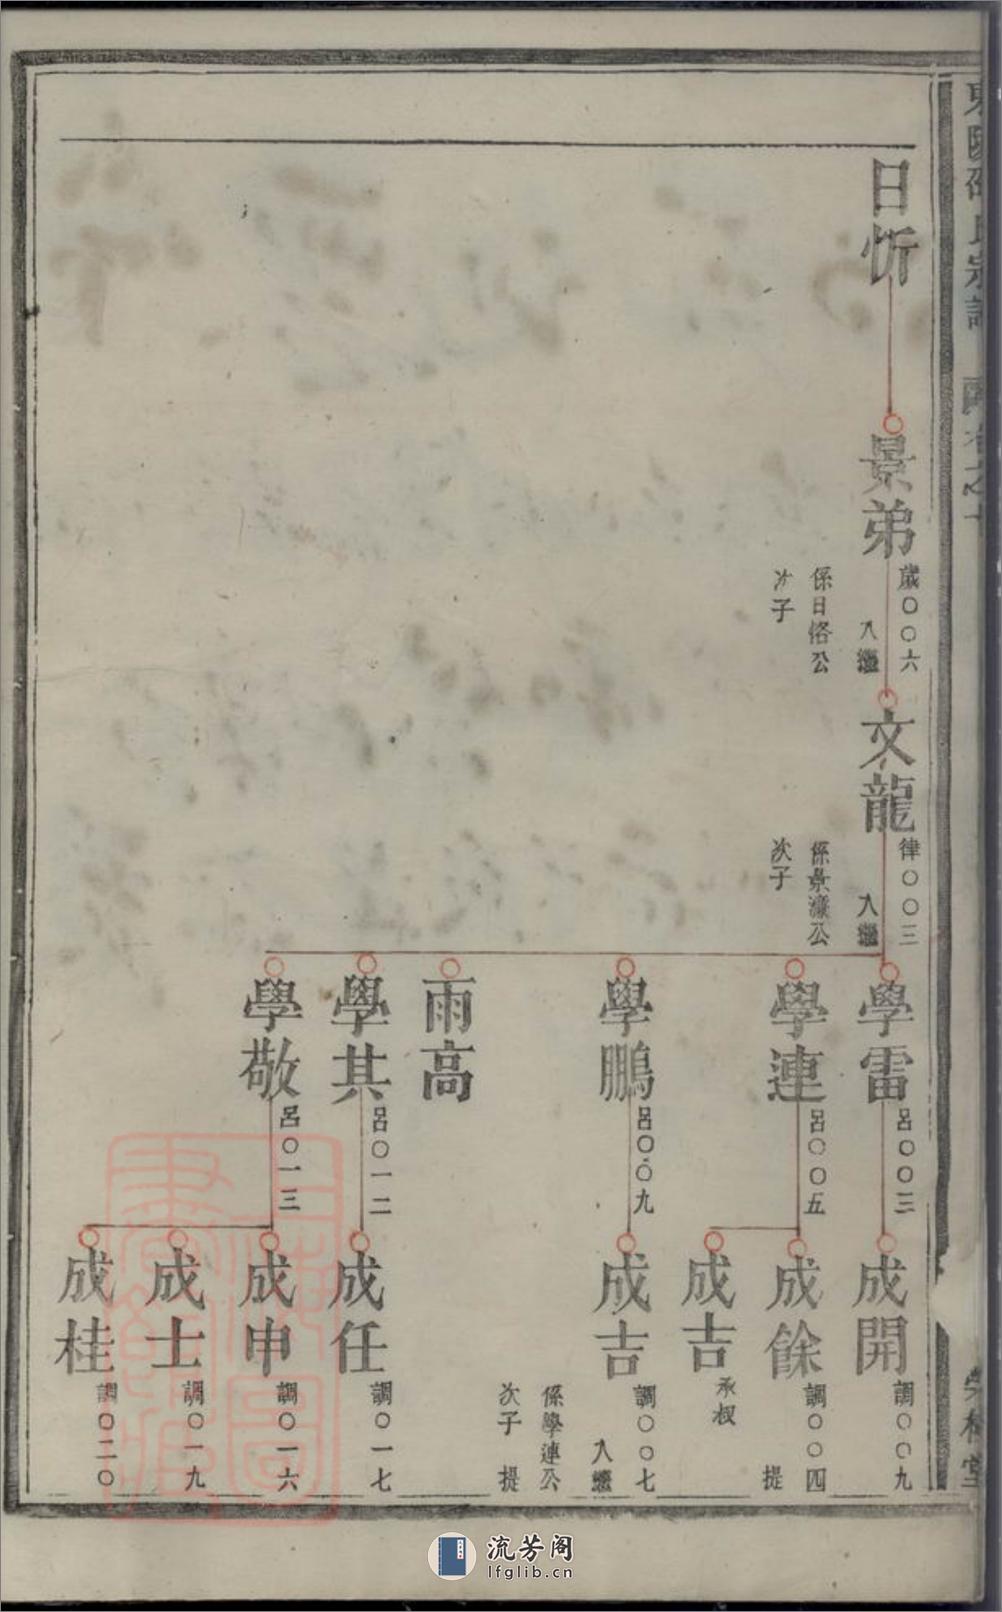 東陽邵氏宗譜
日忻
景弟
歲〇〇六
入繼
係日恪公
次子
文龍
律〇〇三
入繼
係景濠公
次子
學雷
呂〇〇三
學連
呂〇〇五
學鵬
呂〇〇九
雨高
學其
呂〇一二
學敬
呂〇一三
成開
調〇〇九
成餘
調〇〇四
提
成吉
承叔
成吉
調〇〇七
入繼
係學連公
次子 提
成任
調〇一七
成申
調〇一六
成士
調〇一九
成桂
調〇二〇
流芳阁
lfglib.cn